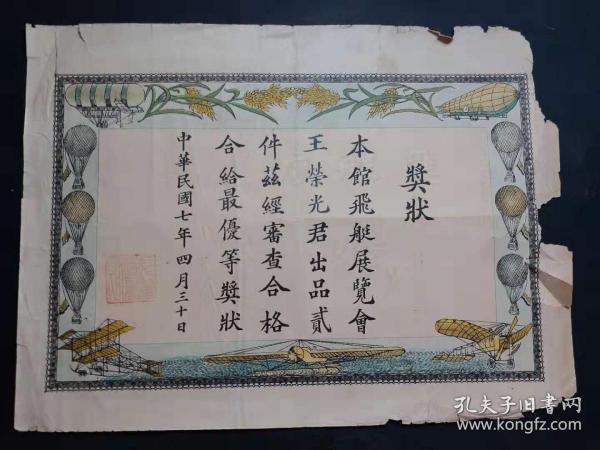 獎狀
本館飛艇展覽會
王榮光君出品貳
件茲經審查合格
合給最優等獎狀
中華民國七年四月三十日
孔夫子旧书网
www.kongfz.com